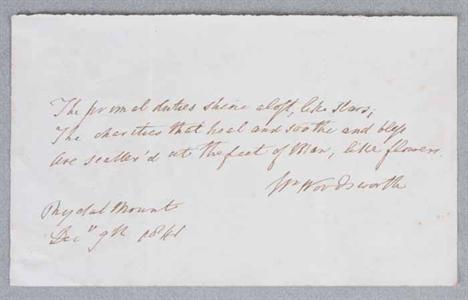 The primal duties shine aloft, like stars;
The charities that heal and soothe and bless
Are scatter'd at the feet of Man, like flowers.
Wm Wordsworth
Rydal Mount
Decr 9th 1841